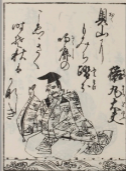 猿丸大夫
奥山に
もみち踏分
鳴鹿の
こゑきく
時そ秋は
かなしき